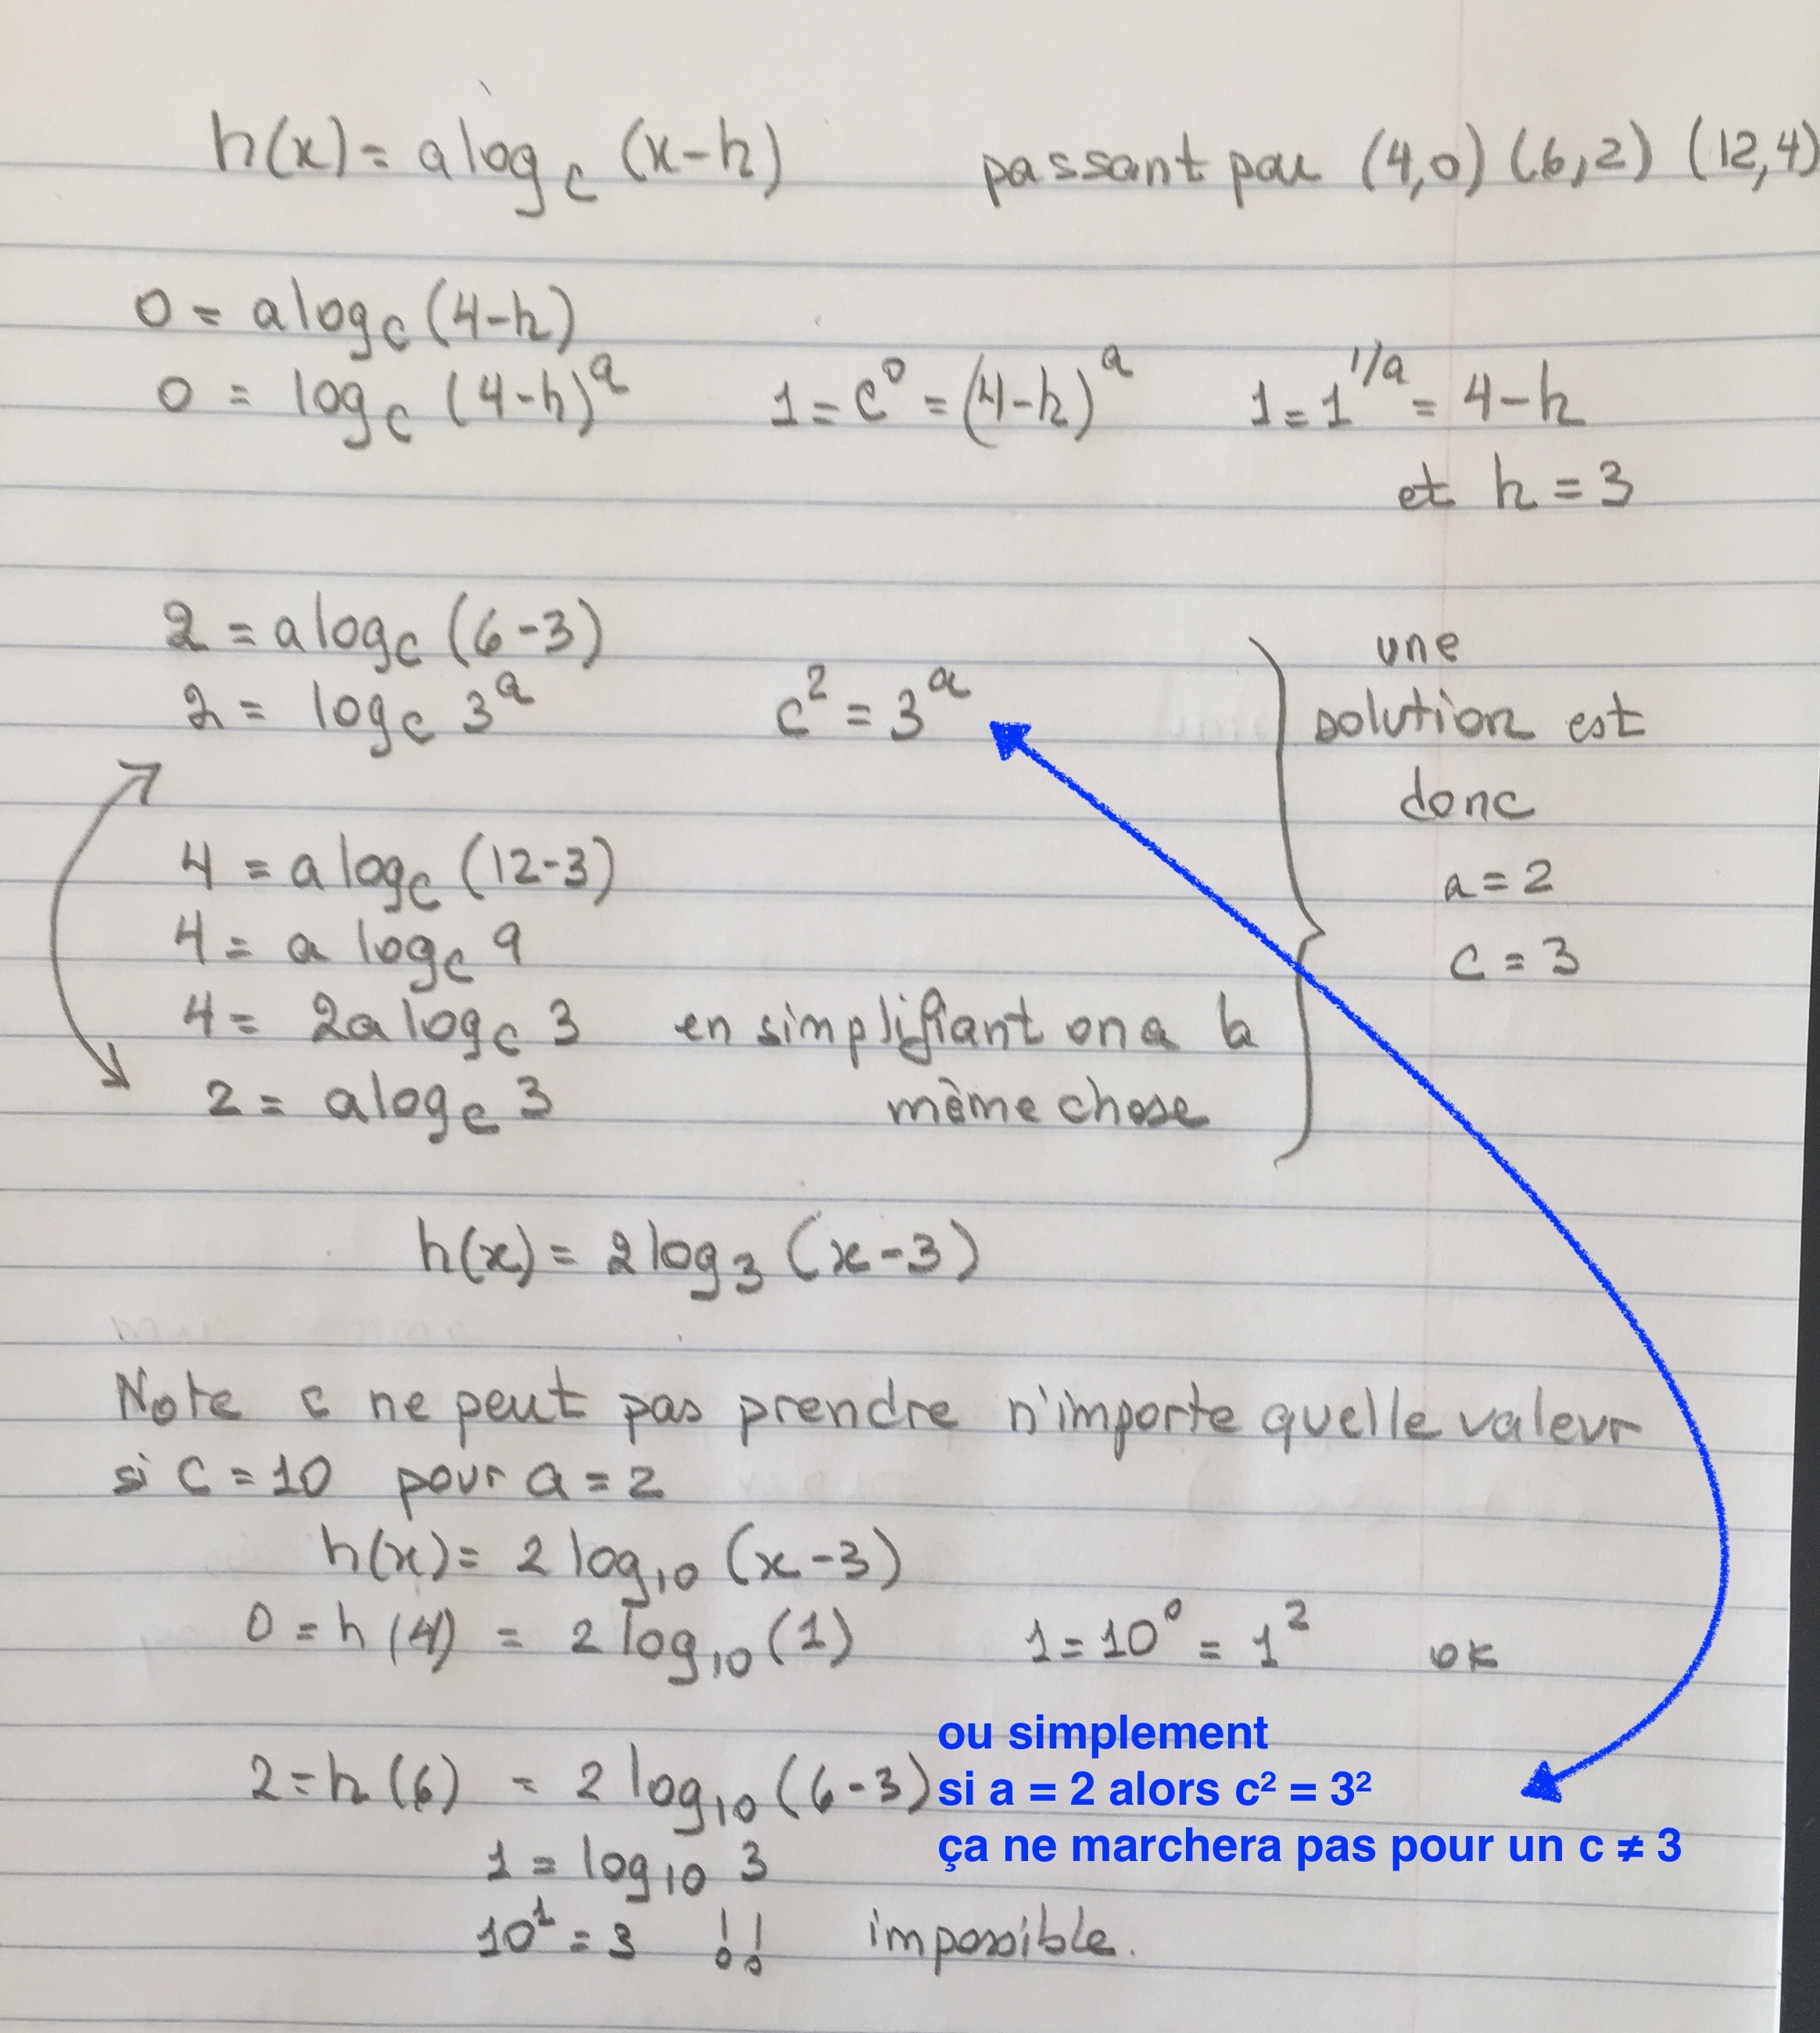 h(x) = a log_c (x-h) passant par (4,0) (6,2) (12,4)
0 = a log_c (4-h)
0 = log_c (4-h)^a 1 = c^0 = (4-h)^a 1 = 1^{1/a} = 4-h
et h = 3
2 = a log_c (6-3)
2 = log_c 3^a c^2 = 3^a
une
solution est
donc
a = 2
c = 3
4 = a log_c (12-3)
4 = a log_c 9
4 = 2a log_c 3 en simplifiant on a la
2 = a log_c 3 même chose
h(x) = 2 log_3 (x-3)
Note c ne peut pas prendre n'importe quelle valeur
si c = 10 pour a = 2
h(x) = 2 log_10 (x-3)
0 = h(4) = 2 log_10 (1) 1 = 10^0 = 1^2 ok
2 = h(6) = 2 log_10 (6-3)
1 = log_10 3
10^1 = 3 !! impossible.
ou simplement
si a = 2 alors c² = 3²
ça ne marchera pas pour un c ≠ 3